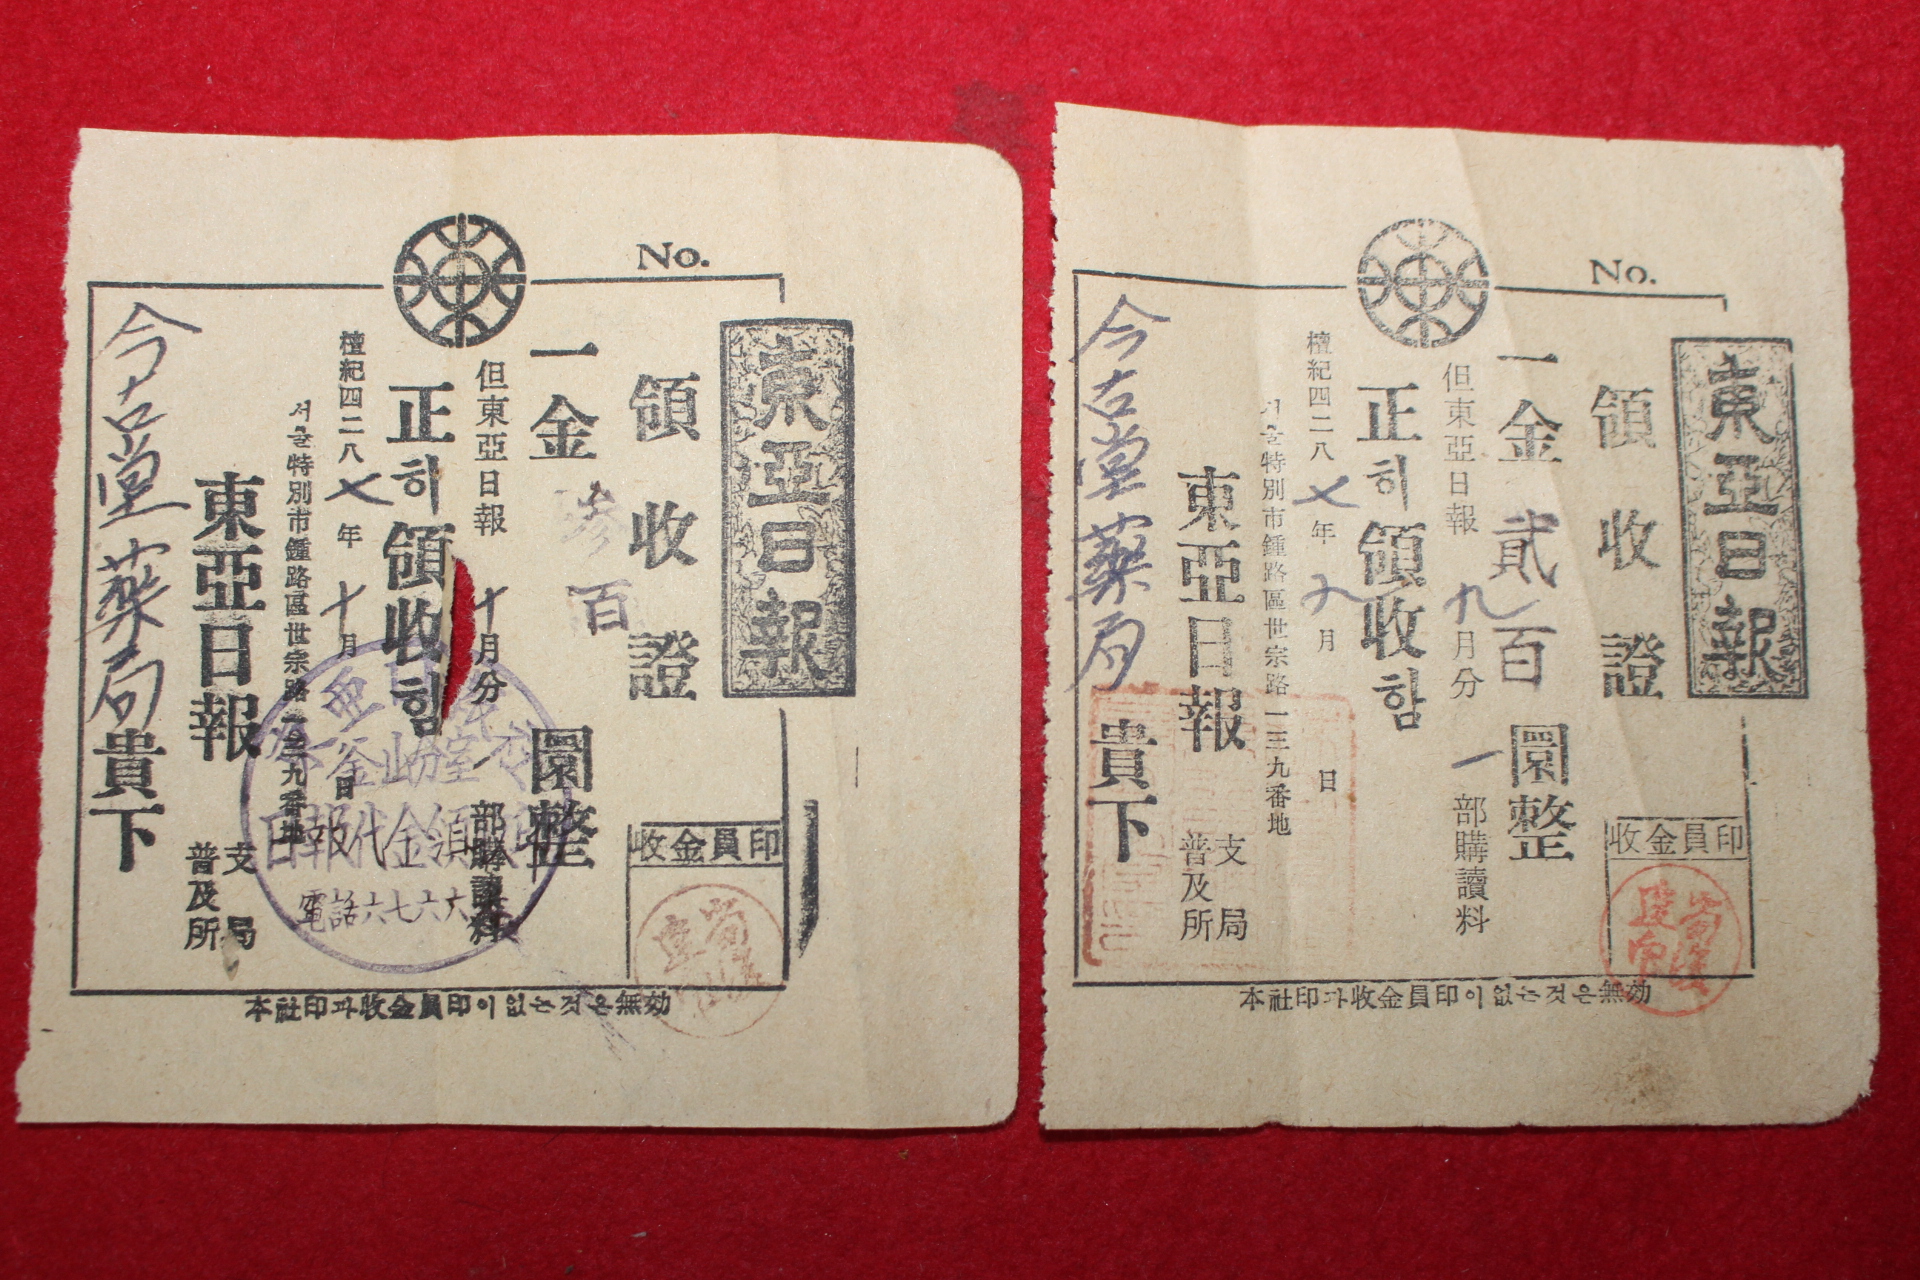 No.
東亞日報
領收證
一金 參百 圜整
但東亞日報 十月分 一部購讀料
正히領收함
檀紀四二八七年 十月 日
서울特別市鍾路區世宗路一三九番地
東亞日報 支局
普及所
今古堂藥局 貴下
收金員印
日報代金領收
電話六七六六
本社印과收金員印이없는것은無効
No.
東亞日報
領收證
一金 貳百 圜整
但東亞日報 九月分 一部購讀料
正히領收함
檀紀四二八七年 九月 日
서울特別市鍾路區世宗路一三九番地
東亞日報 支局
普及所
今古堂藥局 貴下
收金員印
本社印과收金員印이없는것은無効